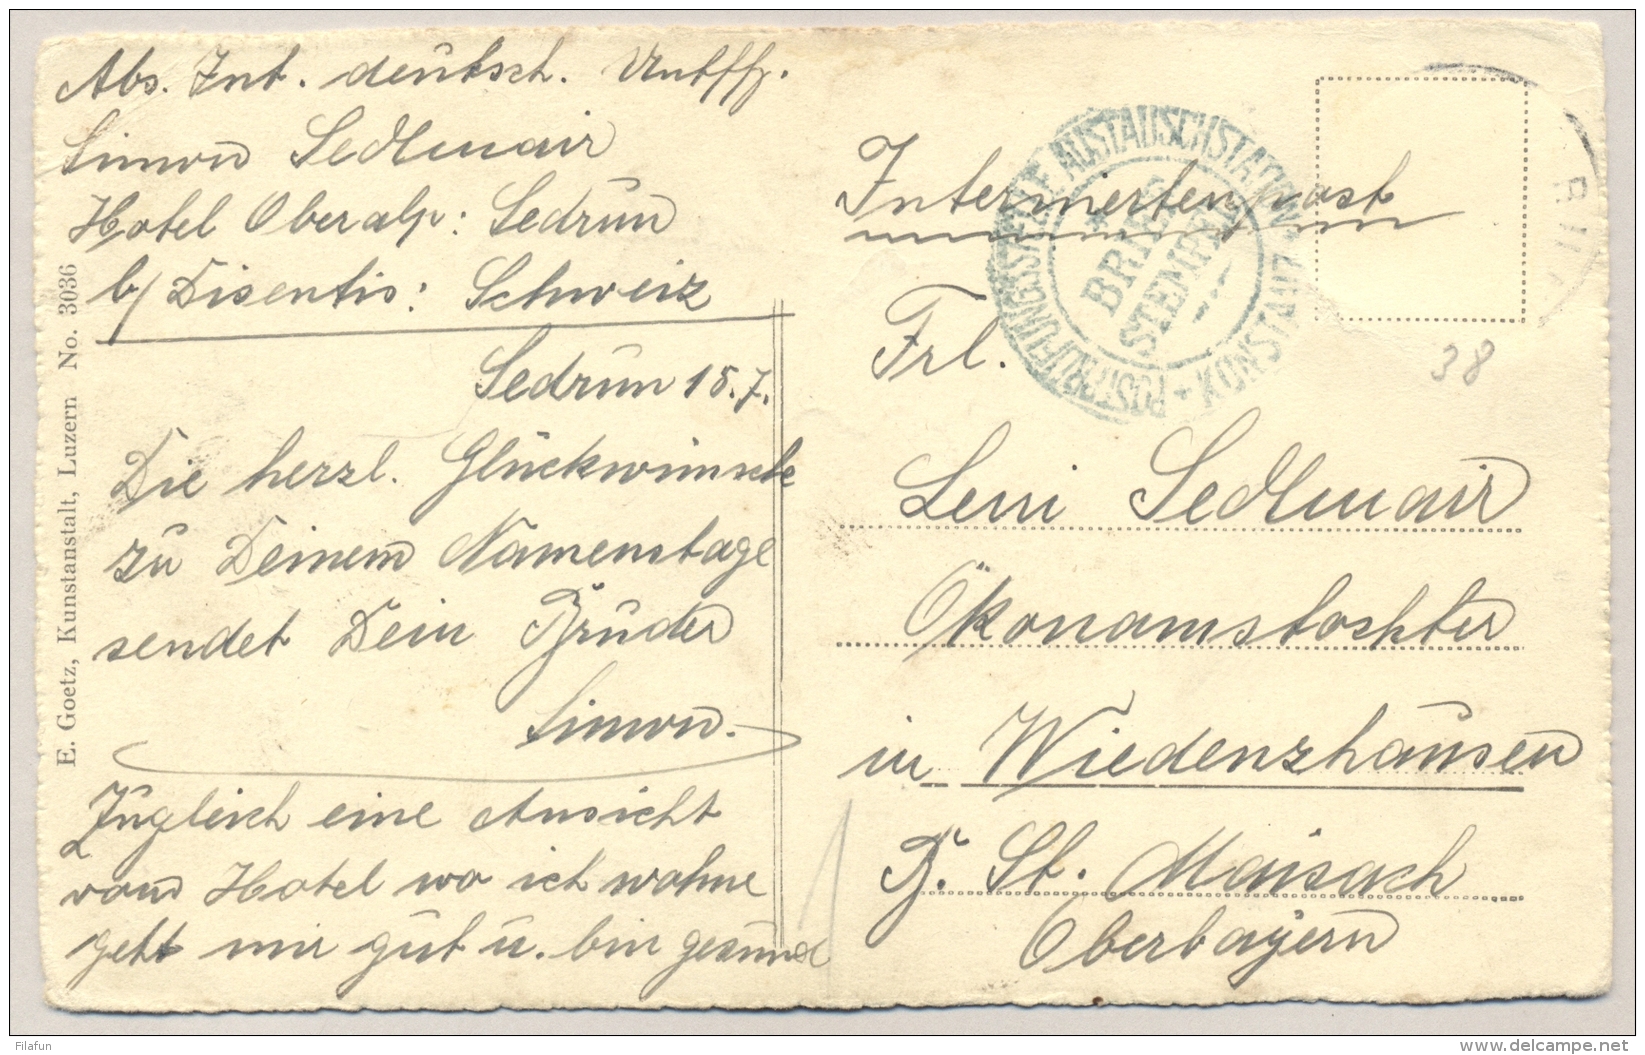 Abs. Int. deutsch. Untffz.
Simon Sedlmair
Hotel Oberalp: Sedrun
b/ Disentis: Schweiz
Sedrun 18.7.
Die herzl. Glückwünsche
zu Deinem Namenstage
sendet Dein Bruder
Simon.
Zugleich eine Ansicht
vom Hotel wo ich wohne
geht mir gut u. bin gesund
E. Goetz, Kunstanstalt, Luzern No. 3036
Interniertenpost
Frl.
Leni Sedlmair
Ökonomstochter
in Wiedenzhausen
B. St. Maisach
Oberbayern
38
POSTPRÜFUNGSSTELLE AUSTAUSCHSTATION KONSTANZ
BRIEF
STEMPEL
Filafun
www.delcampe.net